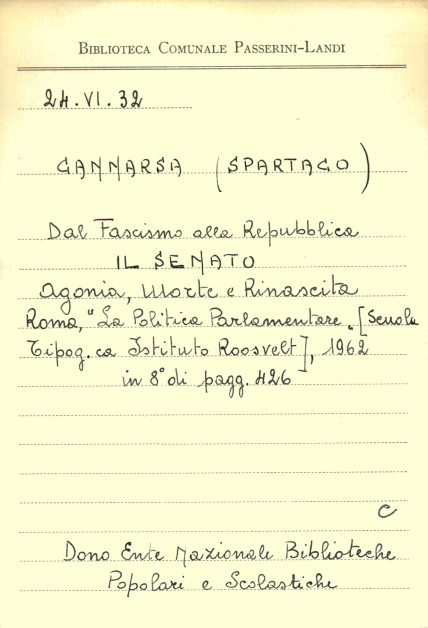 BIBLIOTECA COMUNALE PASSERINI-LANDI
24.VI.32
CANNARSA (SPARTACO)
Dal Fascismo alla Repubblica
IL SENATO
Agonia, Morte e Rinascita
Roma, "La Politica Parlamentare" [Scuola
Tipog.ca Istituto Roosvelt], 1962
in 8° di pagg. 426
C
Dono Ente Nazionale Biblioteche
Popolari e Scolastiche